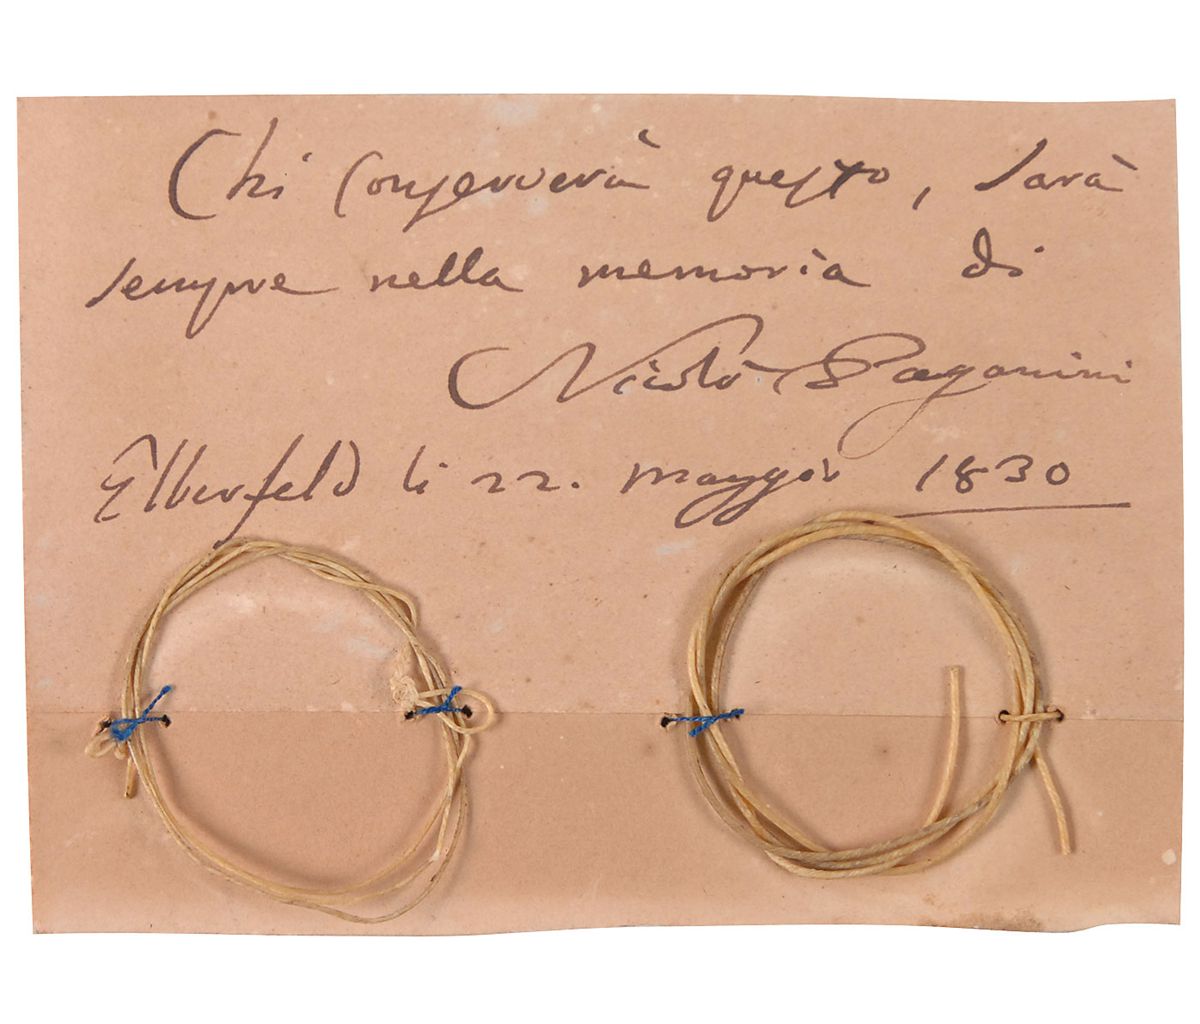 Chi conserverà questo, sarà
sempre nella memoria di
Nicolò Paganini
Elberfeld li 22. maggio 1830